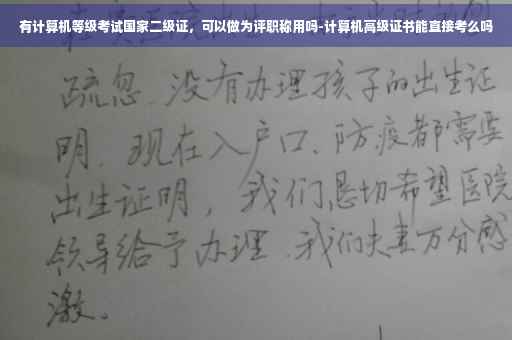 有计算机等级考试国家二级证，可以做为评职称用吗-计算机高级证书能直接考么吗
疏忽、没有办理孩子的出生证
明、现在入户口、防疫都需要
出生证明，我们恳切希望医院
领导给予办理、我们夫妻万分感
激。